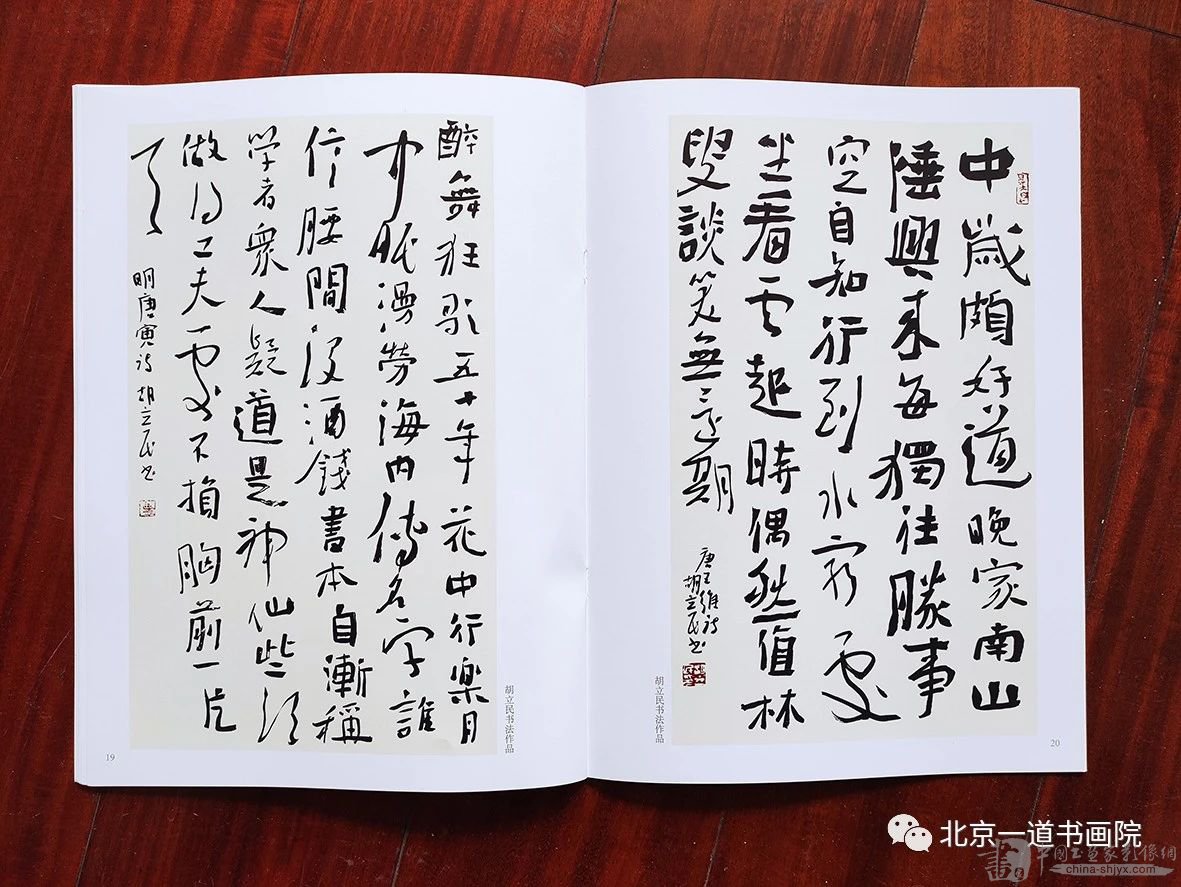 醉舞狂歌五十年花中行樂月
中眠漫勞海内傳名字誰
信腰間没酒錢書本自漸稱
学者衆人疑道是神仙些須
做得工夫處不損胸前一片
天
明唐寅詩 胡立民书
胡立民书法作品
19
中歲頗好道晚家南山
陲興来每獨往勝事
空自知行到水窮處
坐看云起時偶然值林
叟談笑無還期
唐王維詩
胡立民书
胡立民书法作品
20
北京一道书画院
中國书画家影像網
china-shjyx.com